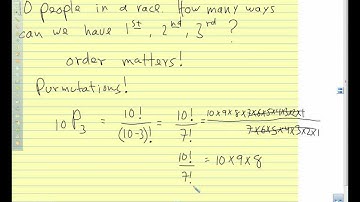 0 people in a race. How many ways
can we have 1st, 2nd, 3rd ?
order matters!
Purmutations!
10P3 = 10!/(10-3)! = 10!/7! = 10×9×8×7×6×5×4×3×2×1/7×6×5×4×3×2×1
10!/7! = 10×9×8